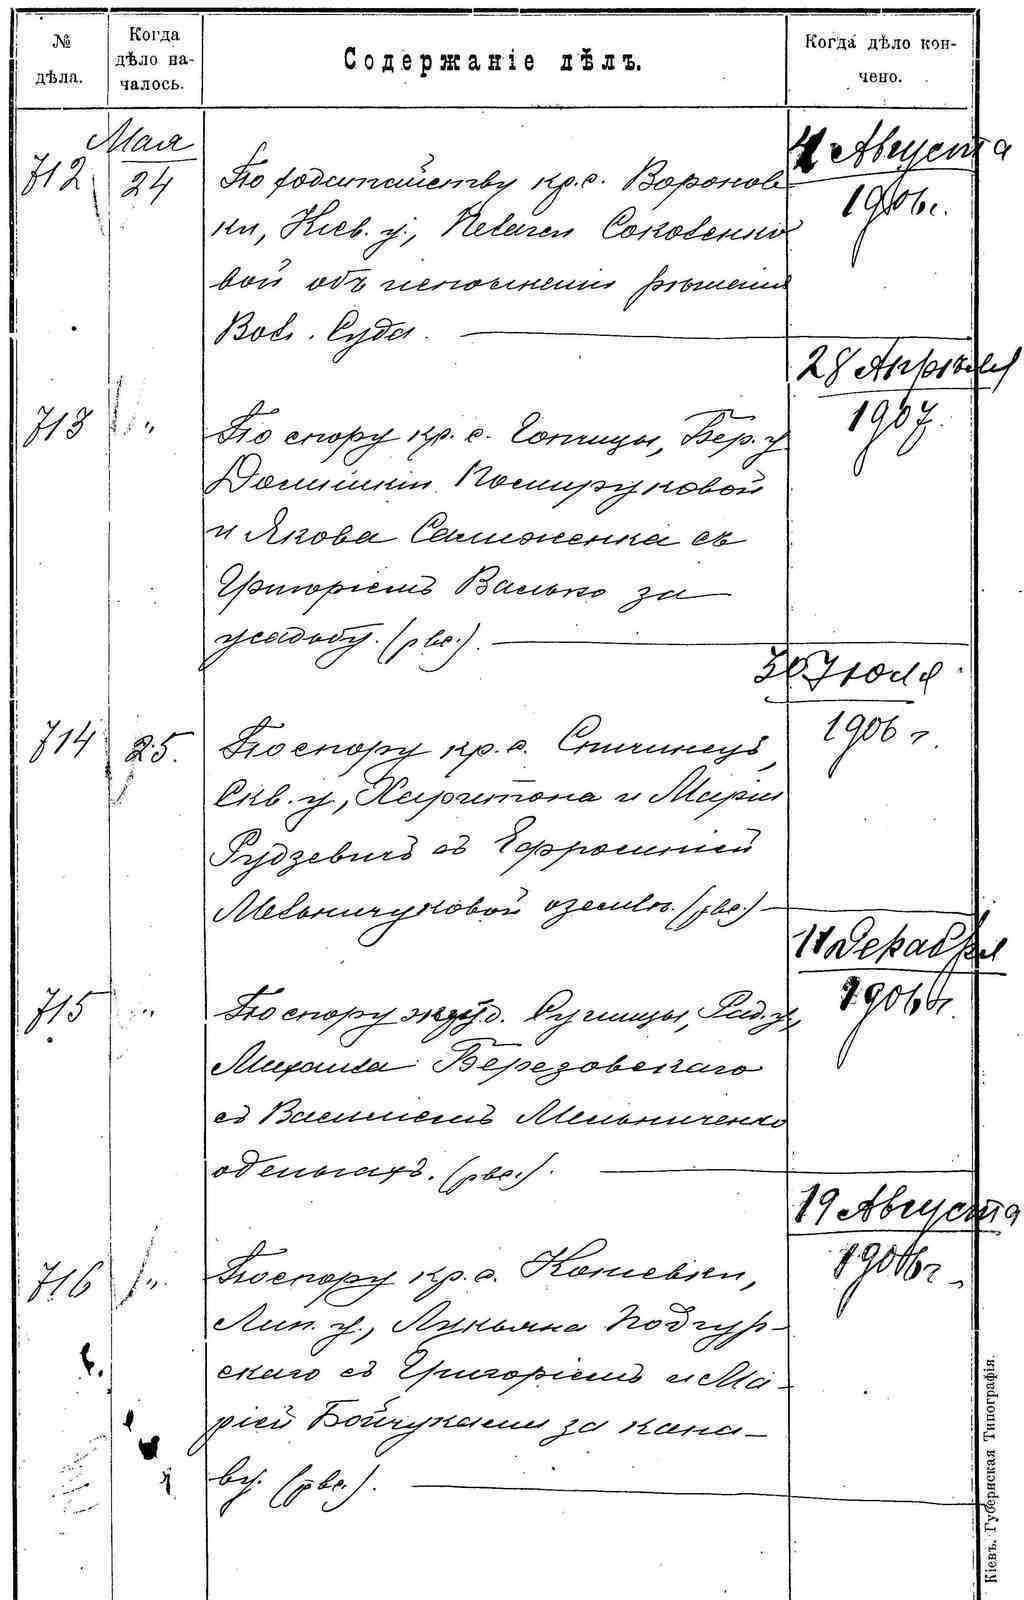 № дѣла.
Когда дѣло началось.
Содержаніе дѣлъ.
Когда дѣло кончено.
Мая
712
24
По ходатайству кр. с. Воронов-
ки, Кіев. у., Пелагеи Соковенко-
вой объ исполненіи рѣшенія
Вол. Суда.
4 Августа
1906 г.
713
"
По спору кр. с. Гопчицы, Бер. у.
Домникіи
и Якова Самженка съ
Григоріемъ Васько за
усадьбу. (рве.).
28 Апрѣля
1907.
714
25.
По спору кр. с. Спичинецъ,
Скв. у., Харитона и Маріи
Рудзевичъ съ Ефросиніей
Мельничуковой о землѣ. (рве.)
30 Іюля
1906 г.
715
"
По спору с. Ручицы, Рад. у.,
Михаила Березовскаго
съ Василіемъ Мельниченко
о деньгахъ. (рве.).
11 Декабря
1906 г.
716
"
По спору кр. с. Конеевки,
Лип. у., Лукьяна Подгур-
скаго съ Григоріемъ и Ма-
ріей Бойчуками за кана-
ву. (рве.).
19 Августа
1906 г.
Кіевъ. Губернская Типографія.